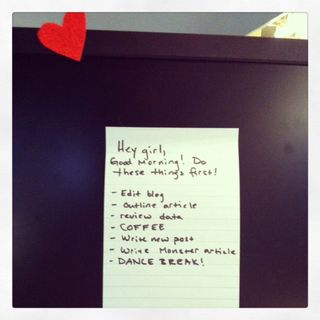 Hey girl,
Good Morning! Do
these things first!
- Edit blog
- Outline article
- review data
- COFFEE
- Write new post
- Write Monster article
- DANCE BREAK!